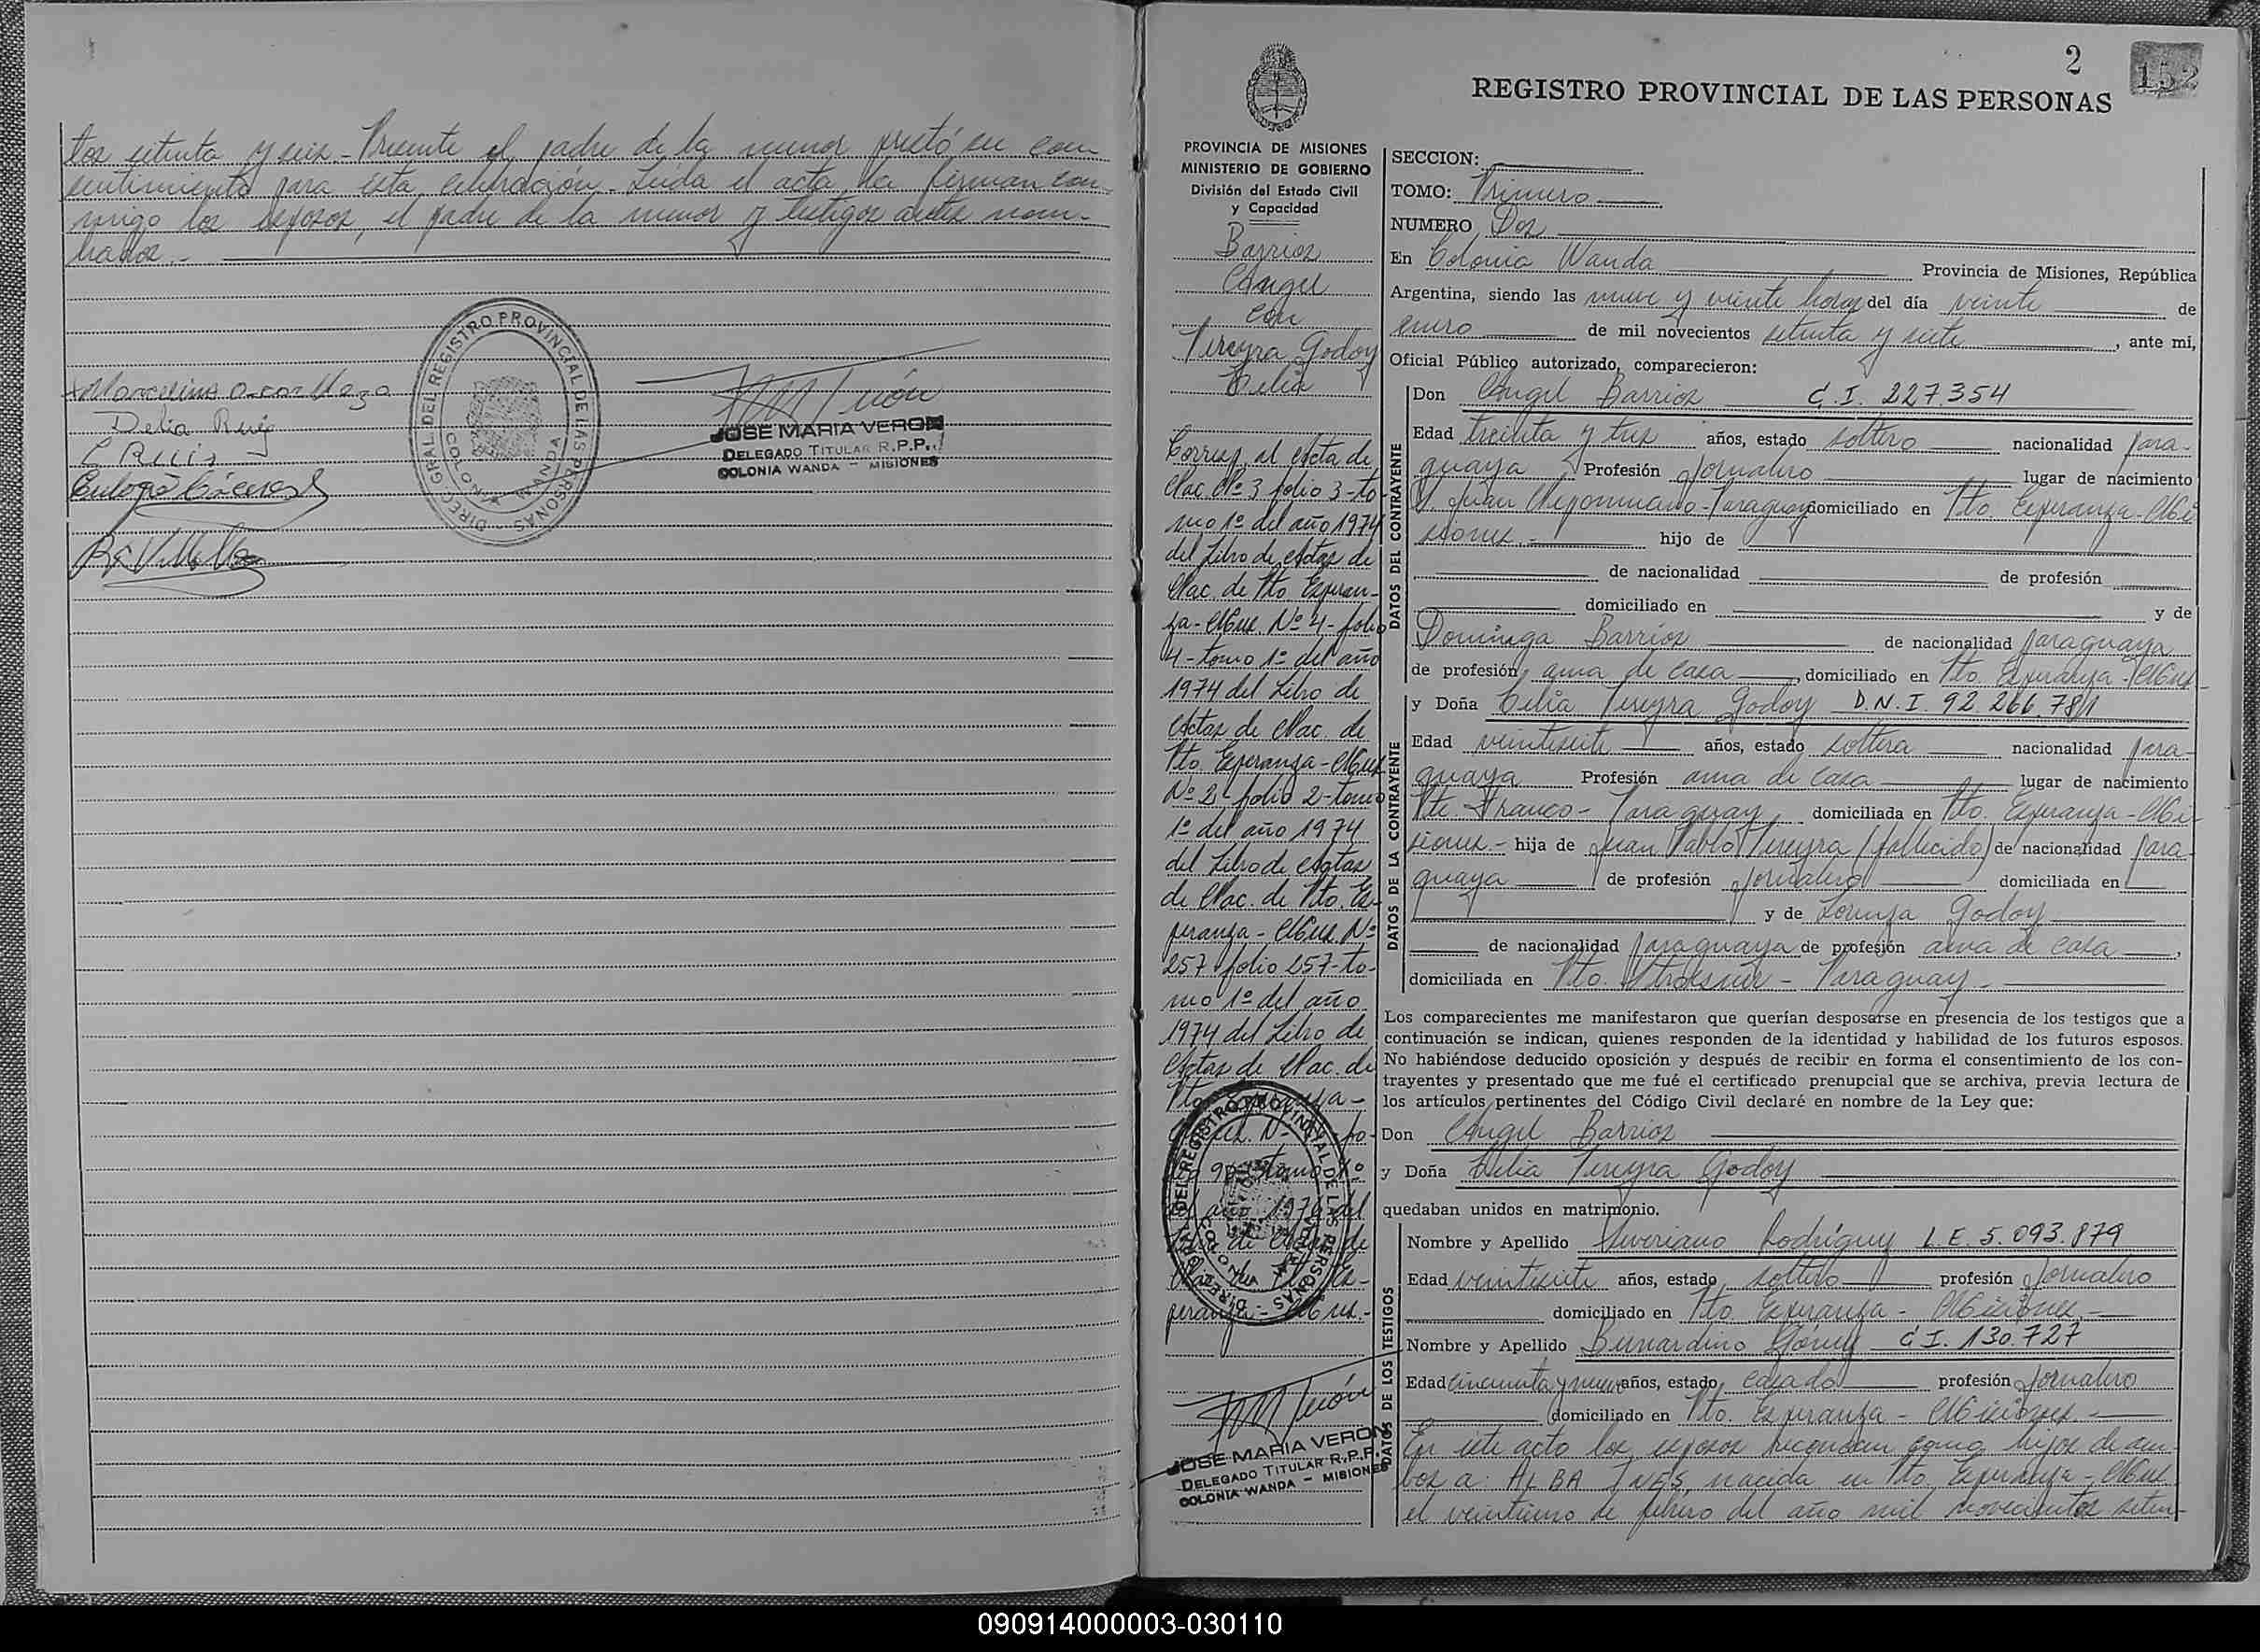 tos setenta y seis - Presente el padre de la menor prestó su con
sentimiento para esta celebración. Leída el acta, la firman con-
migo los esposos, el padre de la menor y testigos antes nom-
brados.-
Delia Ruiz
Eulogio Cáceres
DIREC. GRAL. DEL REGISTRO PROVINCIAL DE LAS PERSONAS
COLONIA WANDA
JOSE MARIA VERON
DELEGADO TITULAR R.P.P.
COLONIA WANDA - MISIONES
2
152
REGISTRO PROVINCIAL DE LAS PERSONAS
PROVINCIA DE MISIONES
MINISTERIO DE GOBIERNO
División del Estado Civil
y Capacidad
Barrios
Angel
con
Pereyra Godoy
Celia
Corresp. al Acta de
Nac. Nº 3 folio 3-to
mo 1º del año 1974
del Libro de Actas de
Nac. de Pto. Esperan-
za - Mnes. Nº 4 - folio
4 - tomo 1º del año
1974 del Libro de
Actas de Nac. de
Pto. Esperanza - Mnes
Nº 2 - folio 2 - tomo
1º del año 1974
del Libro de Actas
de Nac. de Pto. Es-
peranza - Mnes. Nº
257 folio 257 - to-
mo 1º del año
1974 del Libro de
Actas de Nac. de
peranza - Mnes.-
DIREC. GRAL. DEL REGISTRO PROVINCIAL DE LAS PERSONAS
COLONIA WANDA
JOSE MARIA VERON
DELEGADO TITULAR R.P.P.
COLONIA WANDA - MISIONES
SECCION:
TOMO: Primero
NUMERO Dos
En Colonia Wanda Provincia de Misiones, República
Argentina, siendo las nueve y veinte horas del día veinte de
enero de mil novecientos setenta y siete, ante mi,
Oficial Público autorizado, comparecieron:
DATOS DEL CONTRAYENTE
Don Angel Barrios C.I. 227.354
Edad treinta y tres años, estado soltero nacionalidad para-
guaya Profesión Jornalero lugar de nacimiento
S. Juan Nepomuceno - Paraguay domiciliado en Pto. Esperanza - Mi
siones.- hijo de
de nacionalidad de profesión
domiciliado en y de
Dominga Barrios de nacionalidad paraguaya
de profesión ama de casa, domiciliado en Pto. Esperanza - Mnes
DATOS DE LA CONTRAYENTE
y Doña Celia Pereyra Godoy D.N.I. 92.266.781
Edad veintisiete años, estado soltera nacionalidad para-
guaya Profesión ama de casa lugar de nacimiento
Pte. Franco - Paraguay domiciliada en Pto. Esperanza - Mi
siones - hija de Juan Pablo Pereyra (fallecido) de nacionalidad para
guaya de profesión Jornalero domiciliada en
y de Lorenza Godoy
de nacionalidad paraguaya de profesión ama de casa,
domiciliada en Pto. Stroesner - Paraguay -
Los comparecientes me manifestaron que querían desposarse en presencia de los testigos que a
continuación se indican, quienes responden de la identidad y habilidad de los futuros esposos.
No habiéndose deducido oposición y después de recibir en forma el consentimiento de los con-
trayentes y presentado que me fué el certificado prenupcial que se archiva, previa lectura de
los artículos pertinentes del Código Civil declaré en nombre de la Ley que:
Don Angel Barrios
y Doña Celia Pereyra Godoy
quedaban unidos en matrimonio.
DATOS DE LOS TESTIGOS
Nombre y Apellido Severiano Rodríguez L.E. 5.093.879
Edad veintisiete años, estado soltero profesión Jornalero
domiciliado en Pto. Esperanza - Misiones.-
Nombre y Apellido Bernardino Gómez C.I. 130.727
Edad cincuenta y nueve años, estado casado profesión Jornalero
domiciliado en Pto. Esperanza - Misiones.-
En este acto los esposos reconocen como hijos de am-
bos a: ALBA INES, nacida en Pto. Esperanza - Mnes
el veintiuno de febrero del año mil novecientos seten-
090914000003-030110